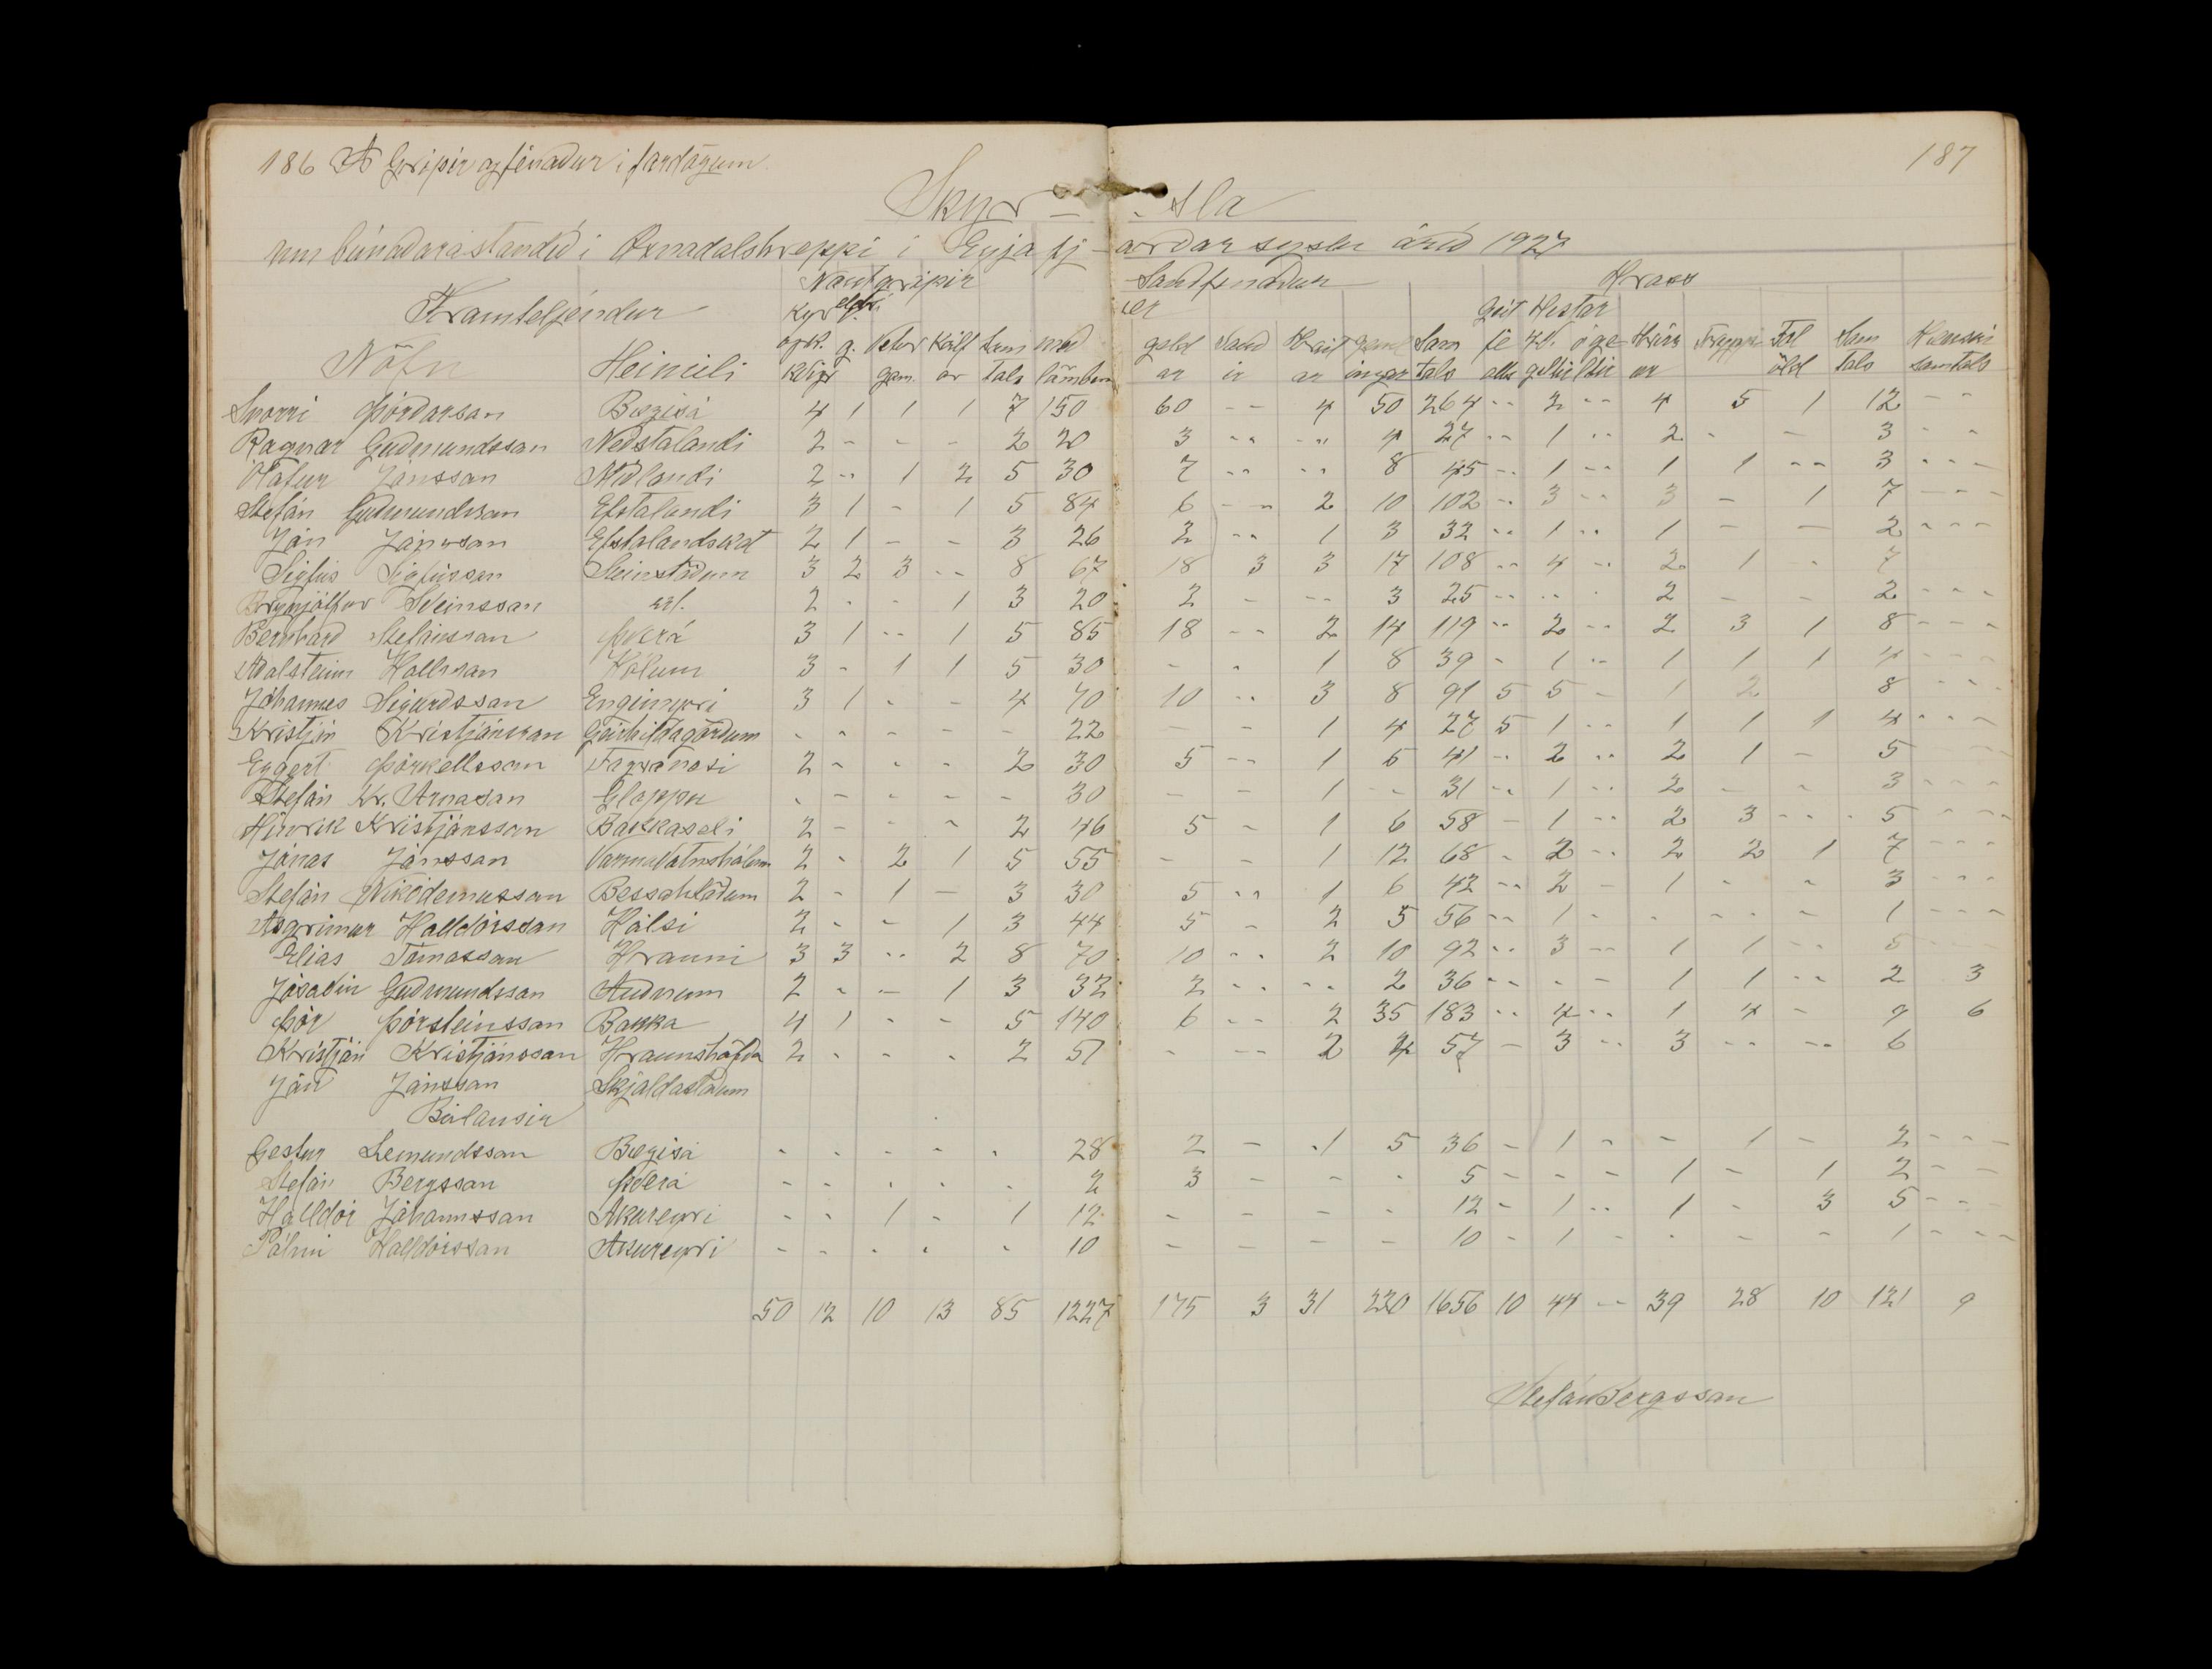 186 A Gripir og fénaður í fardögum 187
Skýr - sla
um búnaðarástandið i Öxnadalshreppi i Eyjafj-arðar syslu árið 1927
Nautgripir Sauðfénaður Hross
Framteljendur Kyr eldri er Geit Hestar
Nöfn Heimili og k. kvígr g. Vetur gam. Kálf ar Sam tals með lömbum geld ar Sauð ir Hrút ar geml ingar Sam tals fé alls 4v. geltir óge ltir Hriss ur Trippi Fol öld Sam tals Hænsni samtals
Snorri Þórdarsan Bægisá 4 1 1 1 7 150 60 -- 4 50 264 -- 2 -- 4 5 1 12 - -
Ragnar Gudmundssan Neðstalandi 2 - - - 2 20 3 -- -- 4 27 -- 1 -- 2 - - 3 - -
Ólafur Jónssan Miðlandi 2 -- 1 2 5 30 7 -- -- 8 45 -- 1 -- 1 1 -- 3 - - -
Stefán Gudmundssan Efstalandi 3 1 - 1 5 84 6 -- 2 10 102 -- 3 -- 3 - 1 7 - - -
Jón Jónssan Efstalandskot 2 1 - - 3 26 2 -- 1 3 32 -- 1 -- 1 - - 2 - - -
Sigfús Sigfússan Steinstöðum 3 2 3 -- 8 67 18 3 3 17 108 -- 4 -- 2 1 - 7
Brynjólfur Sveinssan s.st. 2 - - 1 3 20 2 - -- 3 25 -- -- - 2 - - 2 - - -
Bernhard Stefánssan Þverá 3 1 -- 1 5 85 18 -- 2 14 119 -- 2 -- 2 3 1 8 - - -
Aðalsteinn Hallssan Hólum 3 - 1 1 5 30 - - 1 8 39 - 1 -- 1 1 1 4 - - -
Jóhannes Sigurdssan Engimyri 3 1 - - 4 70 10 -- 3 8 91 5 5 - 1 2 8 - - -
Kristján Kristjánssan Geirhildagördum - - - - - 22 - - 1 4 27 5 1 -- 1 1 1 4 - - -
Eggert Þórkellssan Fagranesi 2 - - - 2 30 5 -- 1 5 41 -- 2 -- 2 1 - 5
Stefán Kr. Árnasan Gloppu - - - - - 30 - - 1 -- 31 -- 1 -- 2 - - 3 - - -
Hinrik Kristjánssan Bakkaseli 2 - - - 2 46 5 - 1 6 58 - 1 -- 2 3 - - 5 - - -
Jónas Jónssan Varmavatnshólum 2 - 2 1 5 55 - - 1 12 68 - 2 -- 2 2 1 7 - - -
Stefán Nikódemussan Bessahlöðum 2 - 1 - 3 30 5 -- 1 6 42 -- 2 - 1 - - 3 - - -
Ásgrímur Halldórssan Hálsi 2 - - 1 3 44 5 - 2 5 56 -- 1 - - - - 1 - - -
Elías Tómassan Hrauni 3 3 -- 2 8 70 10 -- 2 10 92 -- 3 -- 1 1 -- 5 - - -
Jósavin Gudmundssan Auðnum 2 - - 1 3 32 2 -- -- 2 36 -- - - 1 1 -- 2 3
Þór Þórsteinssan Bakka 4 1 - - 5 140 6 -- 2 35 183 -- 4 -- 1 4 - 9 6
Kristján Kristjánssan Hraunshöfða 2 - - - 2 51 - -- 2 4 57 - 3 -- 3 -- -- 6
Jón Jónssan Skjaldastöðum
Búlausir
Gestur Sæmundssan Bægisá - - - - - 28 2 - 1 5 36 - 1 - - 1 - 2 - - -
Stefán Bergssan Þverá - - - - - 2 3 - - - 5 - - - 1 - 1 2 - -
Halldór Jóhannssan Akureyri - - 1 - 1 12 - - - - 12 - 1 -- 1 - 3 5 - -
Pálmi Halldórssan Akureyri - - - - - 10 - - - - 10 - 1 - - - - 1 - - -
50 12 10 13 85 1227 175 3 31 220 1656 10 44 -- 39 28 10 121 9
Stefán Bergssan